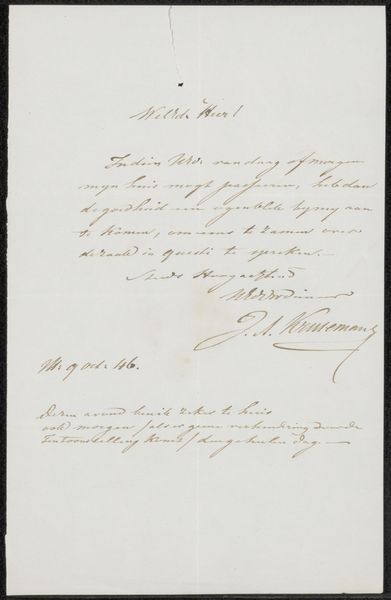 WelEd. Heer!
Indien UEd. vandaag of morgen
mijn huis mogt passeren, heb dan
de goedheid een ogenblik bij mij aan
te komen, om eens te zamen over
de zaak in questi te spreken.
Steeds Hoogachtend
UEd. Dienaar
J. A. Kruseman
9 Oct. 46.
dezen avond ben ik zeker te huis
ook morgen / als er geene verhindering door de
Tentoonstelling komt / den geheelen dag.